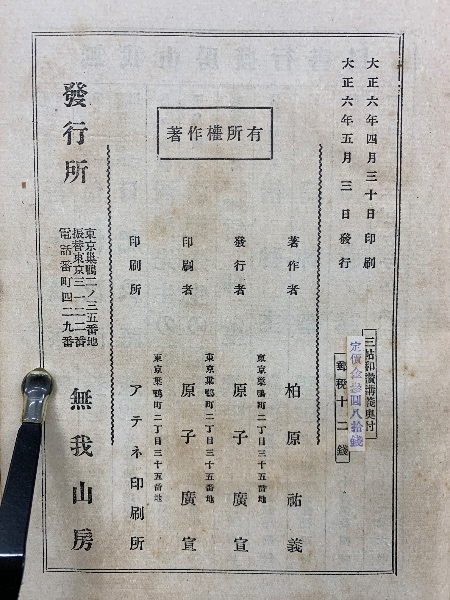 大正六年四月三十日印刷
大正六年五月三日發行
三帖和讃講義奥付
定價金參圓八拾錢
郵税十二錢
著作權所有
著作者 柏原祐義
東京巣鴨町二丁目三十五番地
發行者 原子廣宣
東京巣鴨町二丁目三十五番地
印刷者 原子廣宣
東京巣鴨町二丁目三十五番地
印刷所 アテネ印刷所
發行所
東京巣鴨二ノ三五番地
振替東京三一二二番
電話番町四二九番
無我山房